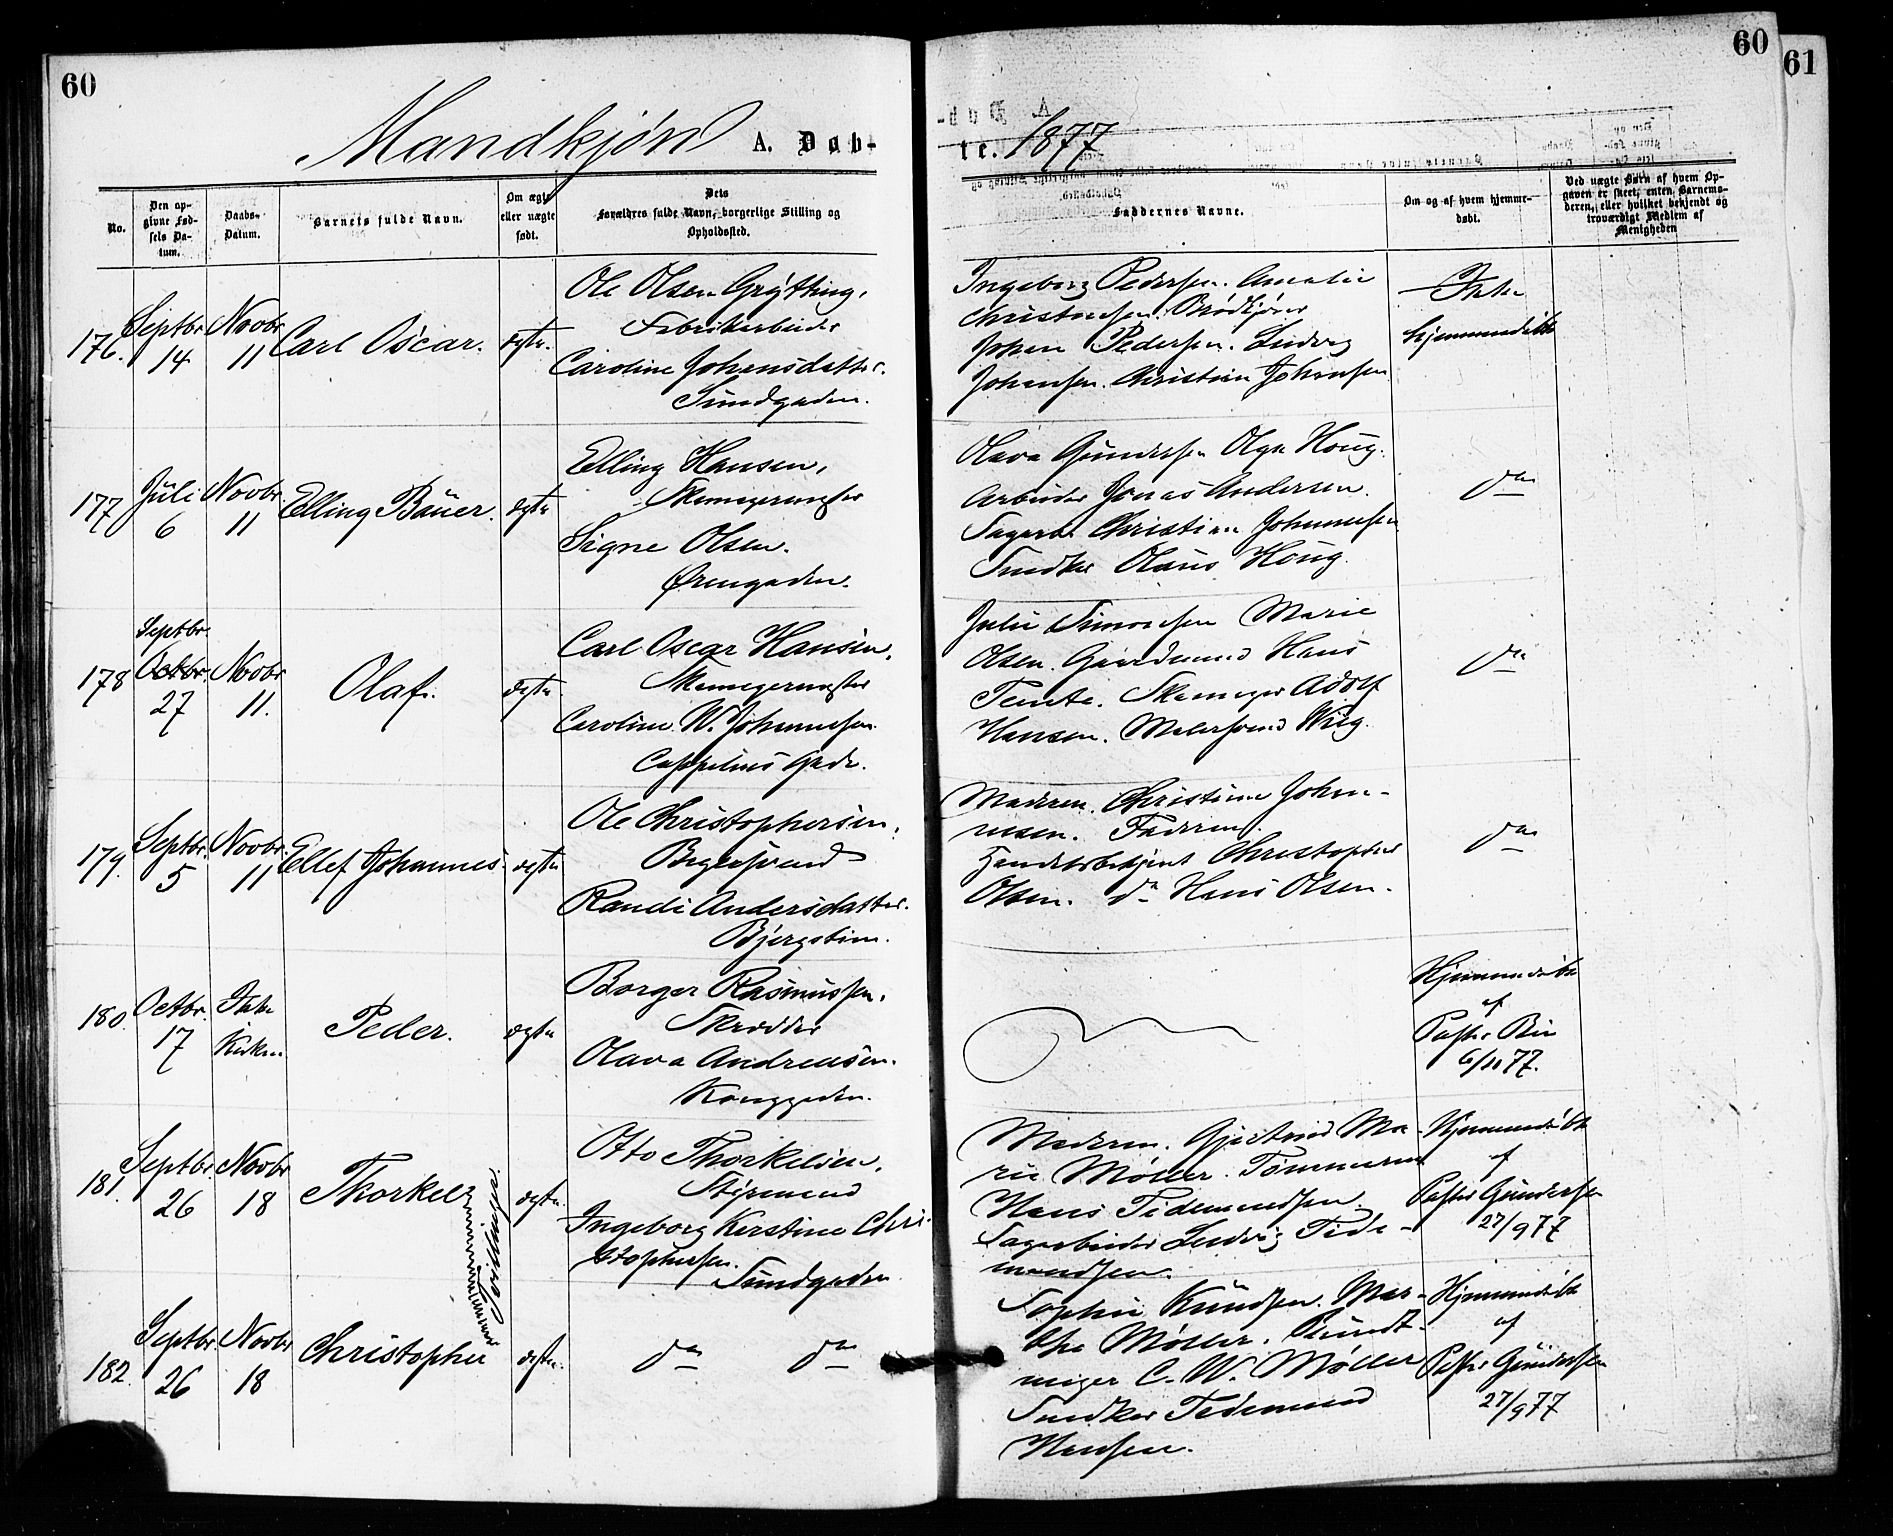 60
60
61
Mandkjøn A. Døb-
te. 1877
No.
Den op-
givne Fød-
sels Da-
tum.
Daabs-
Datum.
Barnets fulde Navn.
Om ægte
eller uægte
født.
Dets
Forældres fulde Navn, borgerlige Stilling og
Opholdssted.
Faddernes Navne.
Om og af hvem hjemme-
døbt.
Ved uægte Børn af hvem Op-
gaven er skeet, enten Barnemo-
deren, eller hvilket bekjendt og
troværdigt Medlem af
Menigheden
176. Septbr 14 Novbr 11 Carl Oscar. ægte.
Ole Olsen Grytting,
Fabrikarbeider
Caroline Johansdatter.
Sundgaden.
Ingeborg Pedersen. Amalie
Christensen. Brødkjører
Johan Pedersen. Ludvig
Johansen. Christian Johansen
Ikke
hjemmedøbt
177 Juli 6 Novbr. 11 Elling Bauer. ægte
Elling Hansen,
Skomagermester
Signe Olsen.
Ørengaden.
Olava Gundersen Olga Houg.
Arbeider Jonas Andersen.
Sagarb. Christian Johannesen
Snedker Olaus Houg.
do
178 Septbr. Octbr. 27 Novbr 11. Olaf. ægte.
Carl Oscar Hansen,
Skomagermester
Caroline W. Johannesen
Cappelens Gade.
Julie Simonsen Marie
Olsen. Gaardmand Hans
Tomte. Skomager Adolf
Hansen. Malersvend Wiig.
do
179. Septbr. 5 Novbr. 11 Ellef Johannes. ægte
Ole Christophersen,
Bagersvend
Randi Andersdatter.
Bjergstien.
Moderen. Christine Johan-
nesen. Faderen.
Handelsbetjent Christopher
Olsen. do Hans Olsen.
do
180. Octbr. 17 Ikke Kirken Peder. ægte
Borger Rasmussen.
Skrædder
Olava Andreasen.
Konggaden.
Hjemmedøbt
af
Pastor Bie
6/11 77.
181. Septbr. 26 Novbr 18 Thorkel ægte.
Tvillinger.
Otto Thorkelsen,
Styrmand
Ingeborg Kerstine Chri-
stophersen.
Sundgaden
Moderen. Gjertrud Ma-
rie Møller. Tømmermd
Hans Tidemandsen.
Sagarbeider Ludvig Tide-
mandsen.
Hjemmedøbt
af
Pastor Gundersen
27/9 77
182. Septbr. 26 Novbr 18 Christopher ægte.
do do
Sophie Knudsen. Mar-
the Møller.
C. W. Møller
Snedker Tidemand
Hansen.
Hjemmedøbt
af
Pastor Gundersen
27/9 77